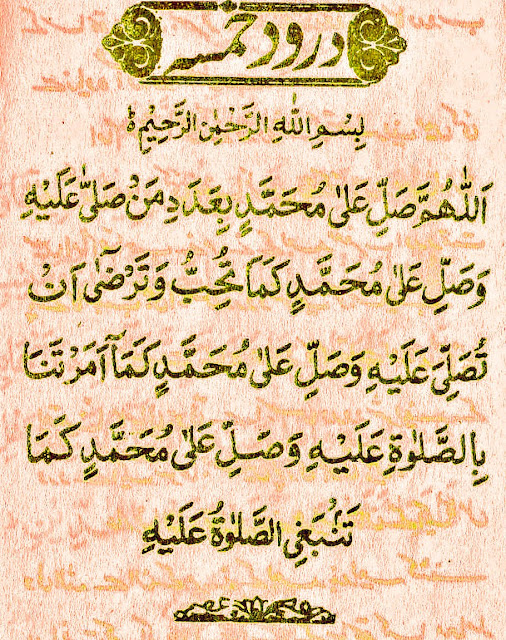 درود خمسہ
بِسْمِ اللهِ الرَّحْمٰنِ الرَّحِيْمِ ۝
اَللّٰهُمَّ صَلِّ عَلٰى مُحَمَّدٍ بِعَدَدِ مَنْ صَلّٰى عَلَيْهِ
وَصَلِّ عَلٰى مُحَمَّدٍ كَمَا تُحِبُّ وَتَرْضٰى اَنْ
تُصَلِّىَ عَلَيْهِ وَصَلِّ عَلٰى مُحَمَّدٍ كَمَآ اَمَرْتَنَا
بِالصَّلٰوةِ عَلَيْهِ وَصَلِّ عَلٰى مُحَمَّدٍ كَمَا
تَنْبَغِى الصَّلٰوةُ عَلَيْهِ